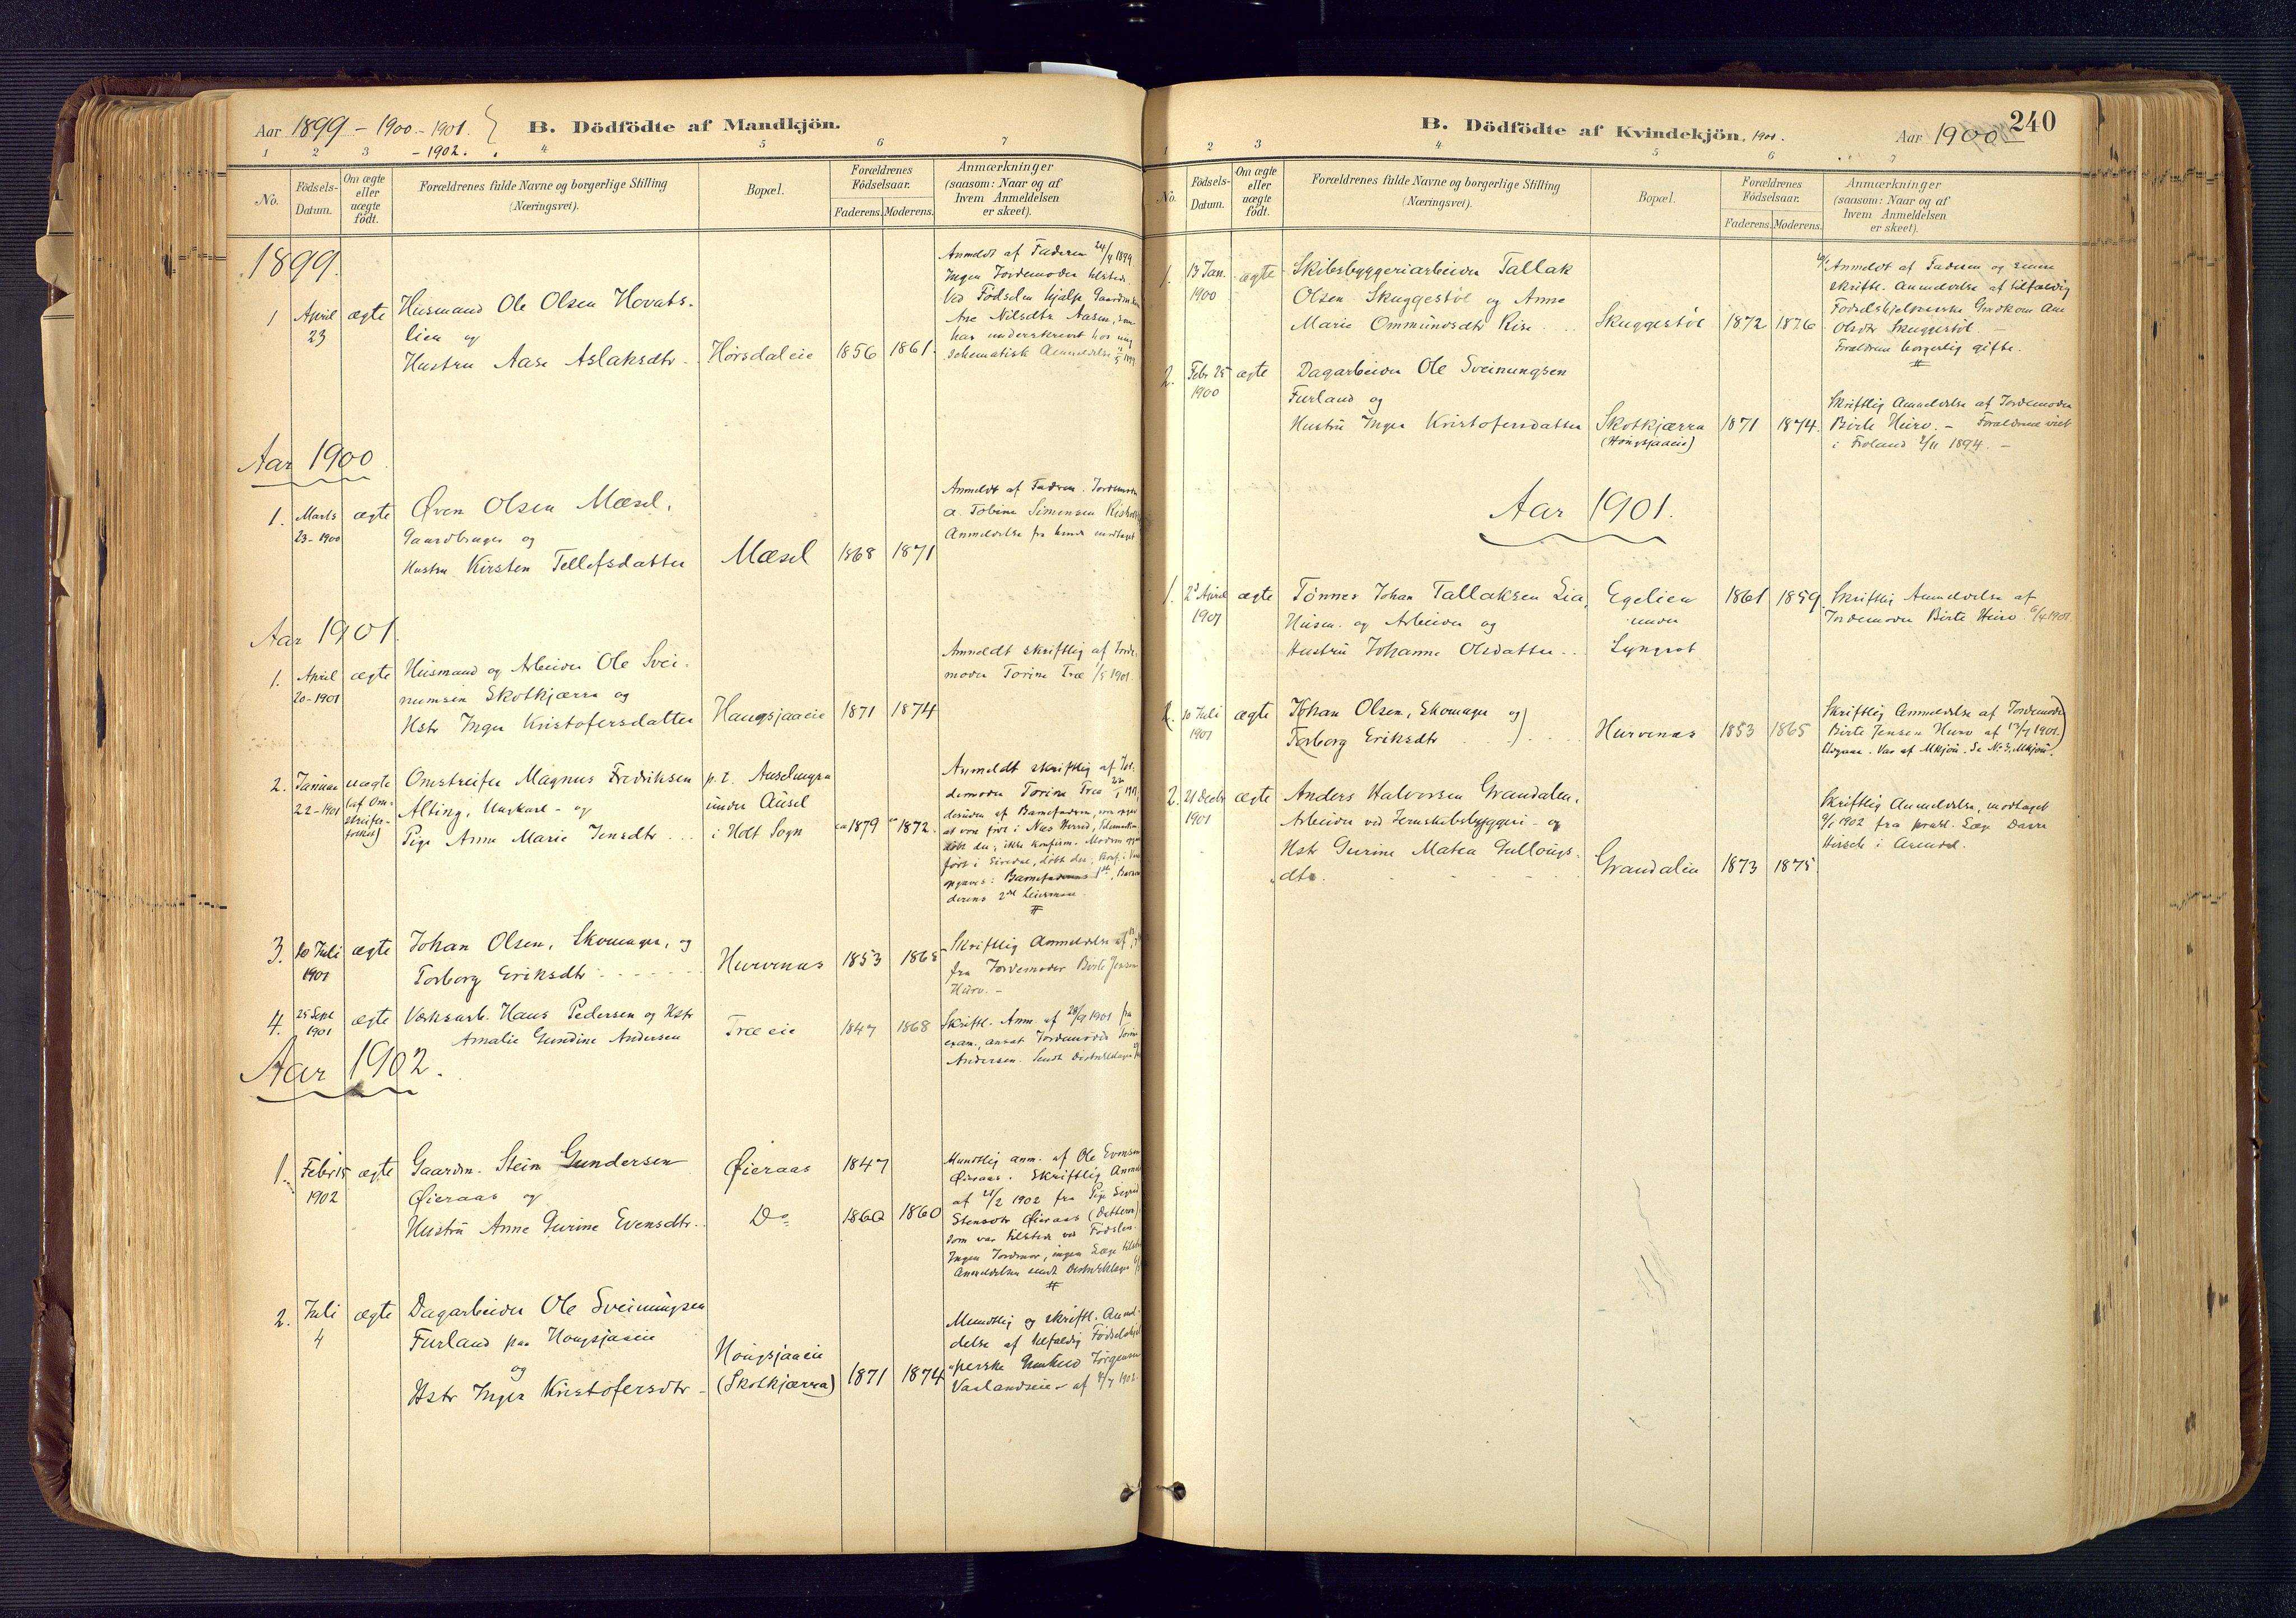 Aar 1899 - 1900 - 1901.
- 1902.
B. Dödfödte af Mandkjön.
1 2 3 4 5 6 7
No.
Födsels-
Datum.
Om ægte
eller
uægte
födt.
Forældrenes fulde Navne og borgerlige Stilling
(Næringsvei).
Bopæl.
Forældrenes
Födselsaar.
Faderens. Moderens.
Anmærkninger
(saasom: Naar og af
hvem Anmeldelsen
er skeet).
1899.
1 April 23 ægte
Husmand Ole Olsen Hovats-
lien og
Hustru Aase Aslaksdtr.
Hørsdaleie 1856 1861
Anmeldt af Faderen 24/4 1899
Ingen Jordemoder tilstede.
Ved Fødselen hjalp
Ase Nilsdtr. Aasen, som
har underskrevet hos mig
schematisk Anmeldelse
Aar 1900
1. Marts 23 - 1900 ægte
Øven Olsen Mæsel,
Gaardbruger og
Hustru Kirsten Tellefsdatter
Mæsel 1868 1871
Anmeldt af Faderen. Jordemoder
a. Tobine Simonsen
Anmeldelse fra hende modtaget
Aar 1901
1. April 20 - 1901 ægte
Husmand og Arbeider Ole Svei-
numsen Skotkjærra og
Hstr Inger Kristofersdatter
Haugsjaaeie 1871 1874
Anmeldt skriftlig af Jorde-
moder Torine Træ 1/5 1901.
2. Januar 22 - 1901 uægte
(af Om-
streifer-
folket)
Omstreifer Magnus Fredriksen
Alting, Ungkarl - og
Pige Anne Marie Jensdtr.
p. t. Auselmyra
under Ausel
i Holt Sogn
ca 1879 ca 1872.
Anmeldt skriftlig af Jor-
demoder Torine Træ
desuden af Barnefaderen, som opgav
at være født i Næs Herred,
døbt der; ikke konfirm. Moderen
født i Siredal, døbt der;
opgaves: Barnefaderens 1ste, Barne-
derens 2det Leiermaal.
#
3. 10 Juli 1901 ægte
Johan Olsen, Skomager, og
Torborg Eriksdtr
Hurvenas 1853 1865
Skriftlig Anmeldelse af
fra Jordemoder Birte Jensen
Hurv. -
4. 25 Sept 1901 ægte
Værksarb. Hans Pedersen og Hstr
Amalie Gundine Andersen
Træ eie 1847 1868
Skriftl. Anm. af 28/9 1901 fra
exam., ansat Jordemoder Torine
Andersen. Sendt Distriktslægen
Aar 1902.
1. Febr 15 1902 ægte
Gaardm. Stein Gundersen
Øieraas og
Hustru Anne Gurine Evensdtr.
Øieraas 1847
Do 1860 1860
Mundtlig anm. af Ole Evensen
Øieraas. Skriftlig Anm.
af 21/2 1902 fra Pige Sigrid
Stensdtr Øieraas (Datteren)
som var tilstede ved Fødslen.
Ingen Jordmor, ingen Læge tilst
Anmeldelsen sendt Distriktslægen
#
2. Juli 4 ægte
Dagarbeider Ole Sveinungsen
Furland paa Hougsjaaeie
og
Hstr Inger Kristofersdtr -
Hougsjaaeie
(Skotkjærra) 1871 1874
Mundtlig og skriftl. Anmel-
delse af tilfældig Fødselshjæl-
perske Gunhild Jørgensen
Vaslandseie - af 8/7 1902.
B. Dödfödte af Kvindekjön. 1901.
Aar 1900
240
1 2 3 4 5 6 7
No.
Födsels-
Datum.
Om ægte
eller
uægte
födt.
Forældrenes fulde Navne og borgerlige Stilling
(Næringsvei).
Bopæl.
Forældrenes
Födselsaar.
Faderens. Moderens.
Anmærkninger
(saasom: Naar og af
hvem Anmeldelsen
er skeet).
1. 13 Jan. 1900 ægte
Skibsbyggeriarbeider Tallak
Olsen Skuggestøl og Anne
Marie Ommundsdtr Rise
Skuggestøl 1872 1876
Anmeldt af Faderen og senere
skriftl. Anmeldelse af tilfældig
Fødselshjelperske Gaardkone Ane
Olsdtr Skuggestøl. -
Forældrene borgerlig gifte.
#
2. Febr 25 1900 ægte
Dagarbeider Ole Sveinungsen
Furland og
Hustru Inger Kristofersdatter
Skotkjærra
(Hougsjaaeie)
1871 1874.
Skriftlig Anmeldelse af Jordemoder
Birte Hurv. - Forældrene viet
i Froland 2/11 1894. -
Aar 1901.
1. 2d April 1901 ægte
Tønnes Johan Tallaksen Lia,
Husm. og Arbeider og
Hustru Johanne Olsdatter
Egelien
under
Lyngrot
1861 1859
Skriftlig Anmeldelse af
Jordemoder Birte Hurv. 6/4 1901.
2. 10 Juli 1901 ægte
Johan Olsen, Skomager og
Torborg Eriksdtr
Hurvenas 1853 1865
Skriftlig Anmeldelse af Jordemoder
Birte Jensen Hurv af 17/7 1901.
Udgaar. Var af Mkjøn. Se No 3, Mkjøn.
2. 21 Decbr 1901 ægte
Anders Halvorsen Grandalen,
Arbeider ved Jernskibsbyggeri - og
Hstr Gurine Matea Gullougs-
dtr.
Grandalen 1873 1875
Skriftlig Anmeldelse, modtaget
9/1 1902 fra prakt. Læge
Hirsch i Arendal.